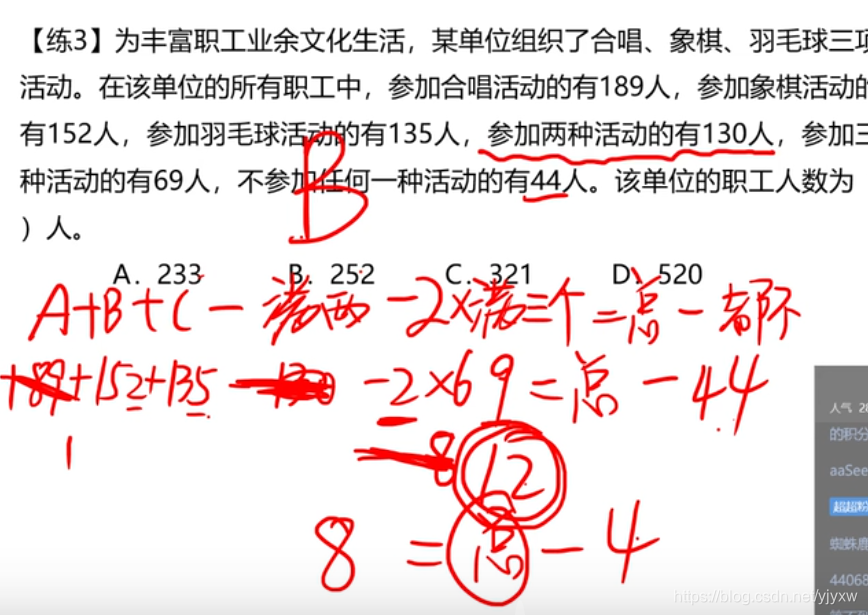 【练3】为丰富职工业余文化生活，某单位组织了合唱、象棋、羽毛球三项
活动。在该单位的所有职工中，参加合唱活动的有189人，参加象棋活动的
有152人，参加羽毛球活动的有135人，参加两种活动的有130人，参加三
种活动的有69人，不参加任何一种活动的有44人。该单位的职工人数为
）人。
B
A. 233 B. 252 C. 321 D. 520
A+B+C－满两－2×满三个=总－都不
189+152+135－130－2×69=总－44
1
8 12
8 =总－4
人气 28
的积分
aaSee
超超粉
蜘蛛鹿
44068
https://blog.csdn.net/yjyxw